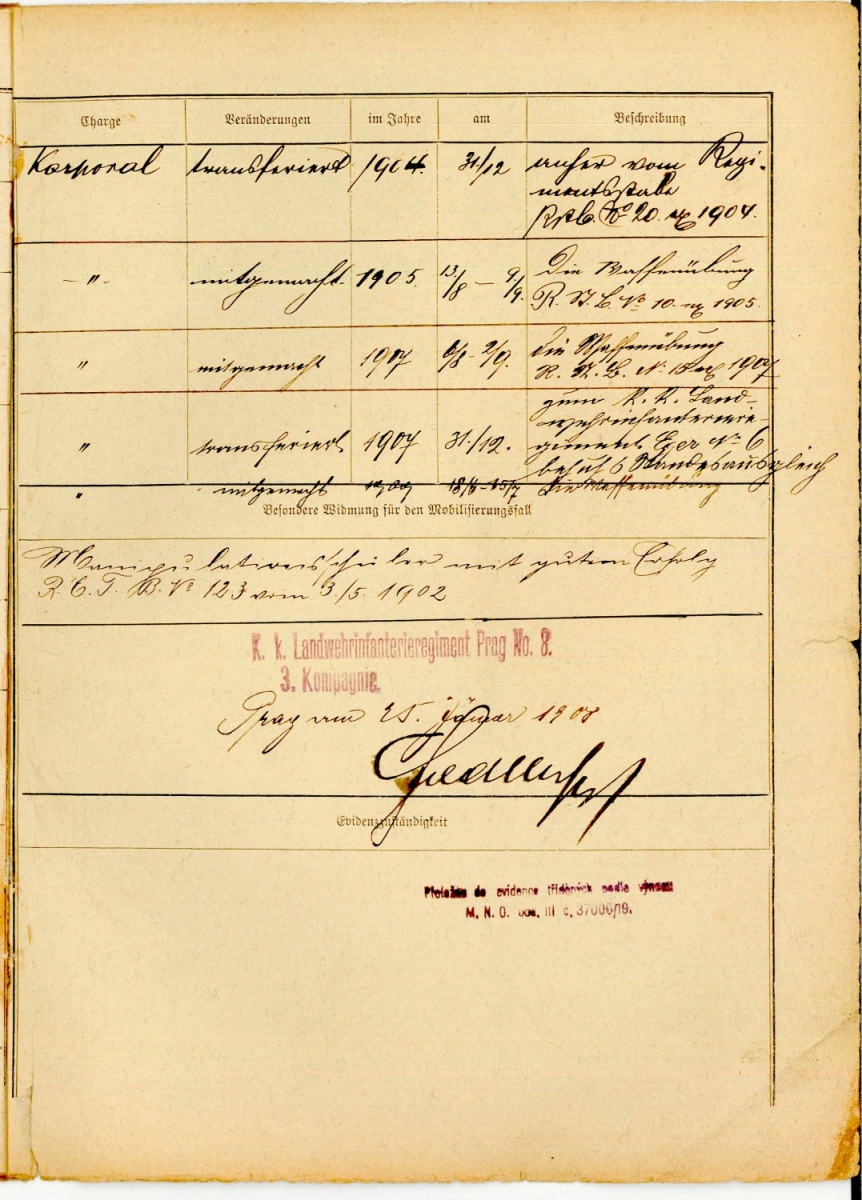 Charge Veränderungen im Jahre am Beschreibung
Korporal transferiert 1904. 31/12 anher vom Regi-
mentsstabe
No 20. ex 1904.
–„– mitgemacht 1905. 13./8 – 9./9. Die Waffenübung
R. St. B. No 10. ex 1905.
„ mitgemacht 1907 6/8 – 2/9. die Waffenübung
R. St. B. No 15 ex 1907
„ transferiert 1907 31./12. zum k. k. Land-
wehrinfanteriere-
giment Eger No 6
behufs Standesausgleich
„ mitgemacht die Waffenübung
Besondere Widmung für den Mobilisierungsfall
Manipulationsschüler mit gutem Erfolg
B. No 123 vom 3./5. 1902
K. k. Landwehrinfanterieregiment Prag No. 8.
3. Kompagnie.
Prag am 25. Jänner 1908
Evidenzzuständigkeit
Přeložen do evidence tříděných podle výnosu
M. N. O. III č. 37000/19.